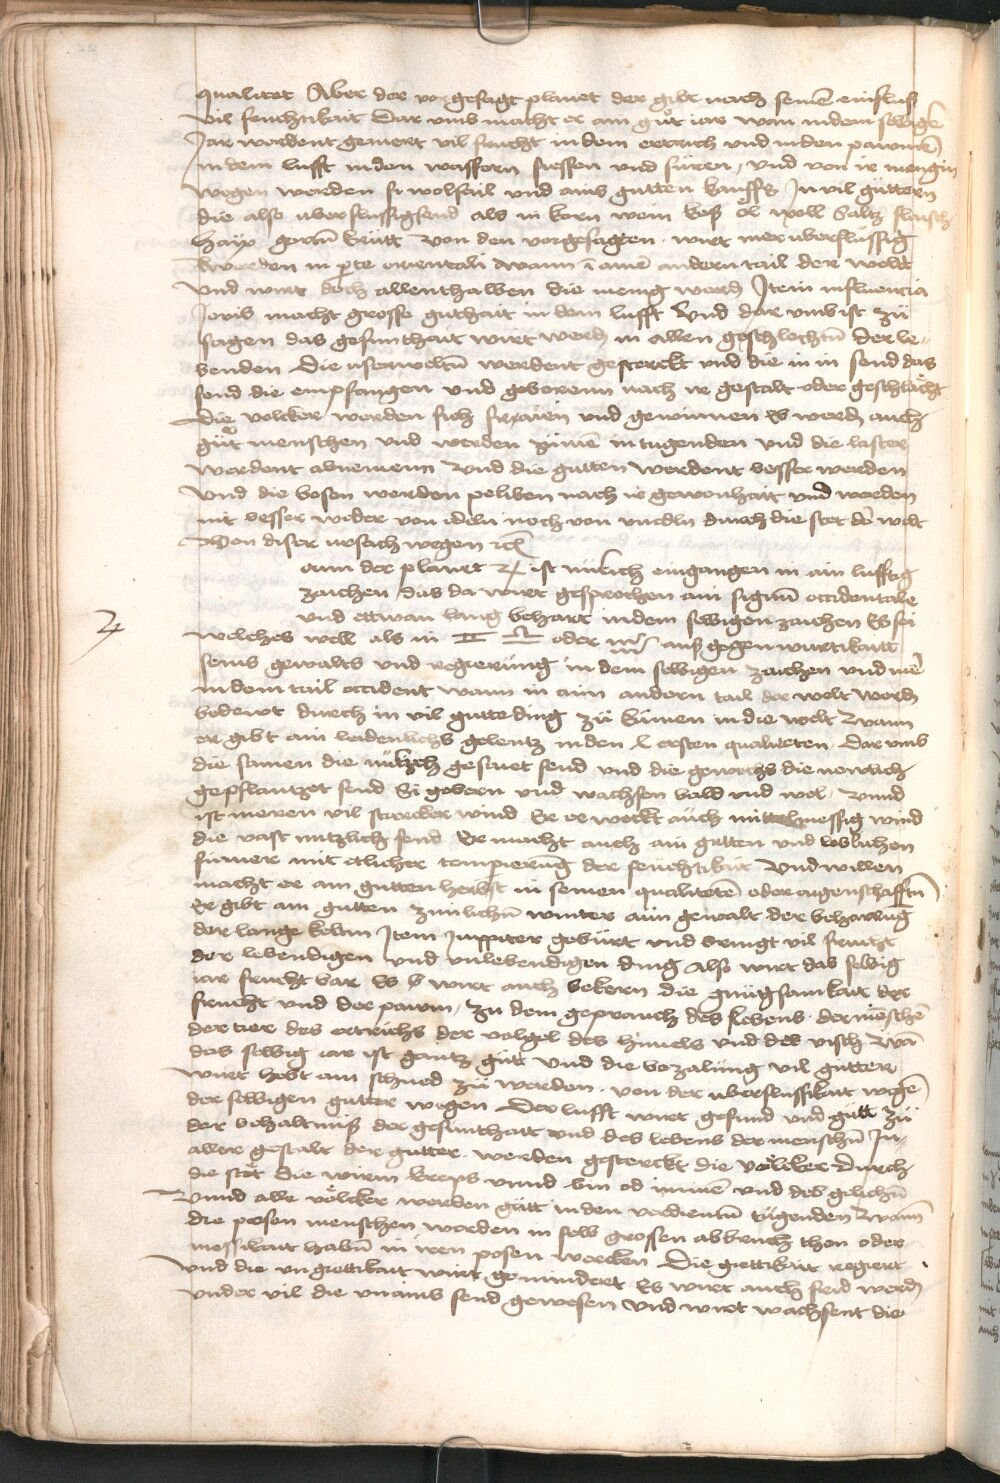 qualitet Aber der vorgesagt planet der gibt nach seine͂ einfluß
vil feuchtikait Dar umb macht er ain gůt iar wan in dem selbige͂
Jar werdent gemert vil frucht in dem ertrich und in den pawme͂
in dem lufft in den wassern siessen und süren, und von ir mengin
wegen werden si wolfail und ains gutten kauffß In vil güttern
die also uberflussigsend als in korn wein keß öl woll saltz flaisch
von den vorgesagten wirt mer uberflüssig
werden in p̱te orientali wann i͂ aine͂ andern tail der welt
und wirt doch allenthalben die menig werd͂ Item influencia
Jovis macht grosse guthait in dem lufft Und dar umb ist zů
sagen das gesunthait wirt werd͂ in allen geschlechtn͂ der le-
benden Die usserweltn͂ werdent gesterckt und die in in send das
send die empfangen und geborenn nach ir gestalt oder geschlächt
Die volcker werden sich fräien und gewinnen Es werd͂ auch
gůt menschen und werden zune͂ in tugenden und die laster
werdent abnemenn Und die gutten werdent besser werden
Und die bosen werden peliben nach ir gewonhait und werden
nit besser weder von edeln noch von unedln durch die stet d͂ welt
Von diser ursach wegen ⁊c͂
ann der planet ♃ ist nülich eingangen in ain lufftig
zaichen das da wirt gesprochen ain signu͂ occidentale
und ettwan lang behart in dem selbigen zaichen Es sei
♃
welches well als in ♊ ♎ oder ♒ auß gegenwurtikaitt
seins gewalts und regierüng in dem selbigen zaichen und me͂
in dem tail occident wann in ain andern tail der welt werd͂
bedewt durch in vil gutte ding zů kümen in die welt Wann
er gibt ain leidenlichs gelentz in den ersten qualiteten Dar umb
die samen die nützlich gesaiet send und die gewechs die newlich
gepflantzet send Si gebern und wachsen bald und wol Unnd
ist meren vil starcker wind Er erweckt auch mittelmessig wind
die vast nützlich send Er macht auch ain gutten und loblichen
sumer mit etlicher temperierung der feuchtikait Und willen
macht er ain gutten herbst in seinen qualitete͂ oder aigenschafftn͂
Er gibt ain gutten zimlichn͂ winter ain gewalt der beharrug͂
der lange keltin Item Juppiter gebürt und bringt vil frucht
der lebendigen und unlebendigen ding also wirt das selbig
iar fruchtbar Es wirt auch bekern die gnügsamkait der
frucht und der pawm, zu dem geprauch des lebens der me͂sche͂
der tier des ertrichs der vögel des himels und des visch Wa͂
das selbig iar ist gantz gůt und die bezalüng vil gütter
wirt hebt an schned zů werden von der uberflussikait wege͂
der selbigen gutter wegen Der lufft wirt gesund und gůtt zů
der behaltniß der gesunthait und des lebens der menschn͂ In
aller gestalt der gutter werden gesterckt die völcker Durch
die stet die wirm kreps unnd bin od imme͂ und des gelichn͂
Unnd alle völcker werden gůtt in den verdientn͂ tügenden Wann͂
die posen menschen werden in selb grossen abbruch then oder
messikait habn͂ in iren posen wercken Die gerettikait regiert
und die ungrettikait wirt gemindert Es wirt auch frid werd͂
under vil die unains send gewesen und wirt wachsent die